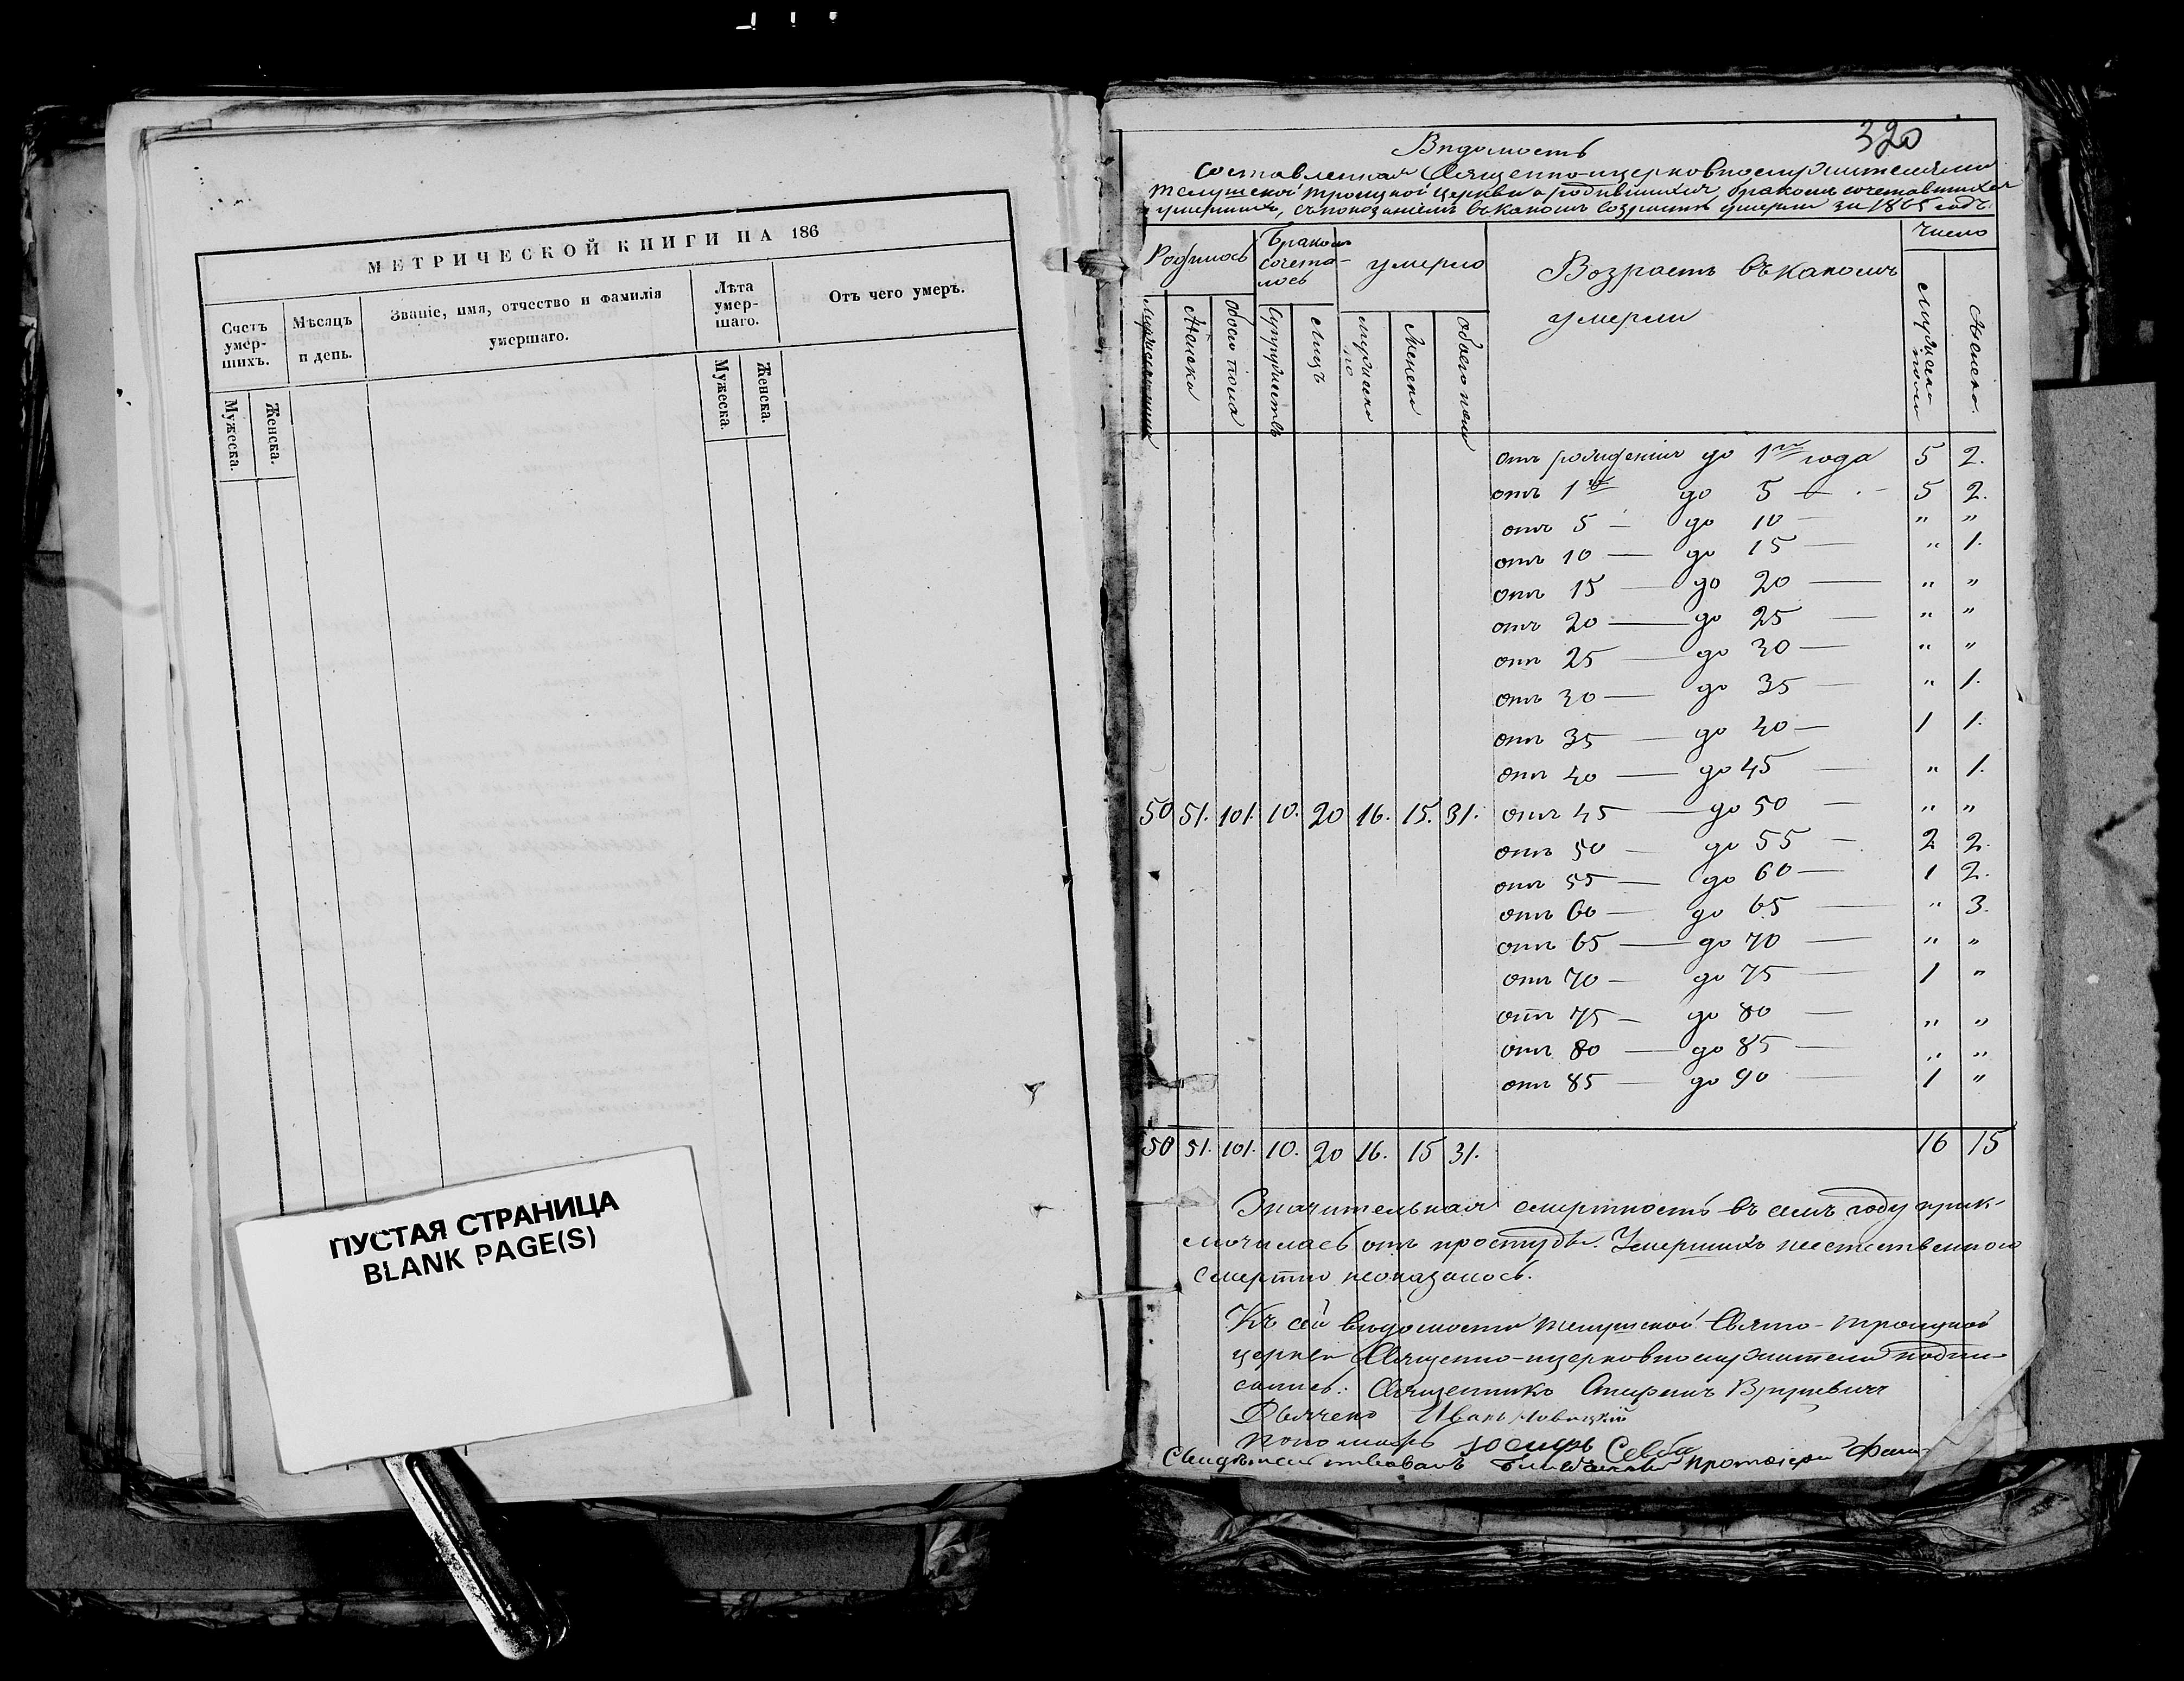 МЕТРИЧЕСКОЙ КНИГИ НА 186
Счетъ умер-шихъ.
Мужеска.
Женска.
Мѣсяцъ и день.
Званіе, имя, отчество и фамилія умершаго.
Лѣта умер-шаго.
Мужеска.
Женска.
Отъ чего умеръ.
ПУСТАЯ СТРАНИЦА
BLANK PAGE(S)
320
Вѣдомость
составленная Священно-церковнослужителями
Троицкой церкви о родившихся, бракомъ сочетавшихся
умершихъ, съ показаніемъ въ какомъ возрастѣ умерли за 1865 годъ
Родилось
Бракомъ сочета-лось
умерло
Возрастъ въ какомъ
умерли
Число
Женска
Обоего пола
Супружествъ
Лицъ
Женска
Обоего пола
Мужеска пола
Женска.
отъ рожденія до 1го года 5 2.
отъ 1го до 5 — 5 2.
отъ 5 — до 10 — " "
отъ 10 — до 15 — " 1.
отъ 15 — до 20 — " "
отъ 20 — до 25 — " "
отъ 25 — до 30 — " "
отъ 30 — до 35 — " 1.
отъ 35 — до 40 — 1 1.
отъ 40 — до 45 — " 1.
50 51. 101. 10. 20 16. 15. 31. отъ 45 — до 50 — " "
отъ 50 — до 55 — 2 2.
отъ 55 — до 60 — 1 2.
отъ 60 — до 65 — " 3.
отъ 65 — до 70 — " "
отъ 70 — до 75 — 1 "
отъ 75 — до 80 — " "
отъ 80 — до 85 — " "
отъ 85 — до 90 — 1 "
50 51. 101. 10. 20 16. 15 31. 16 15
Значительная смертность въ семъ году прик-
лючилась отъ простуды. Умершихъ неестественною
смертію неоказалось.
Къ сей вѣдомости Свято-Троицкой
церкви Священно-церковнослужители подпи-
сались: Священникъ
Дьячекъ Иванъ Новицкій
Пономарь Іосифъ
Свидѣтельствовалъ Протоіерей